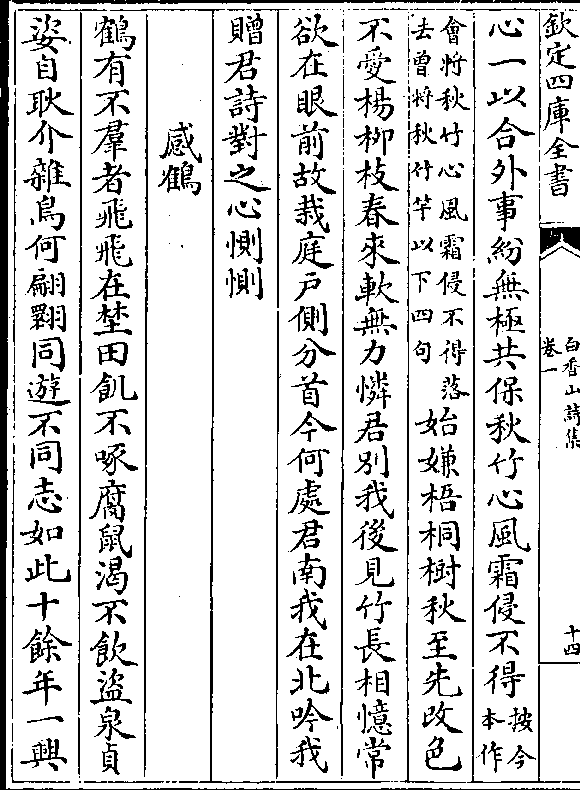 欽定四庫全書
白香山詩集
卷一
十四
心一以合外事紛無極共保秋竹心風霜侵不得按今
本作
會將秋竹心風霜侵不得落
去曾將秋竹竿以下四句
始嫌梧桐樹秋至先改色
不愛楊柳枝春來軟無力憐君別我後見竹長相憶常
欲在眼前故栽庭戶側分首今何處君南我在北吟我
贈君詩對之心惻惻
感鶴
鶴有不羣者飛飛在埜田飢不啄腐鼠渴不飲盜泉貞
姿自耿介雜鳥何翩翾同遊不同志如此十餘年一興